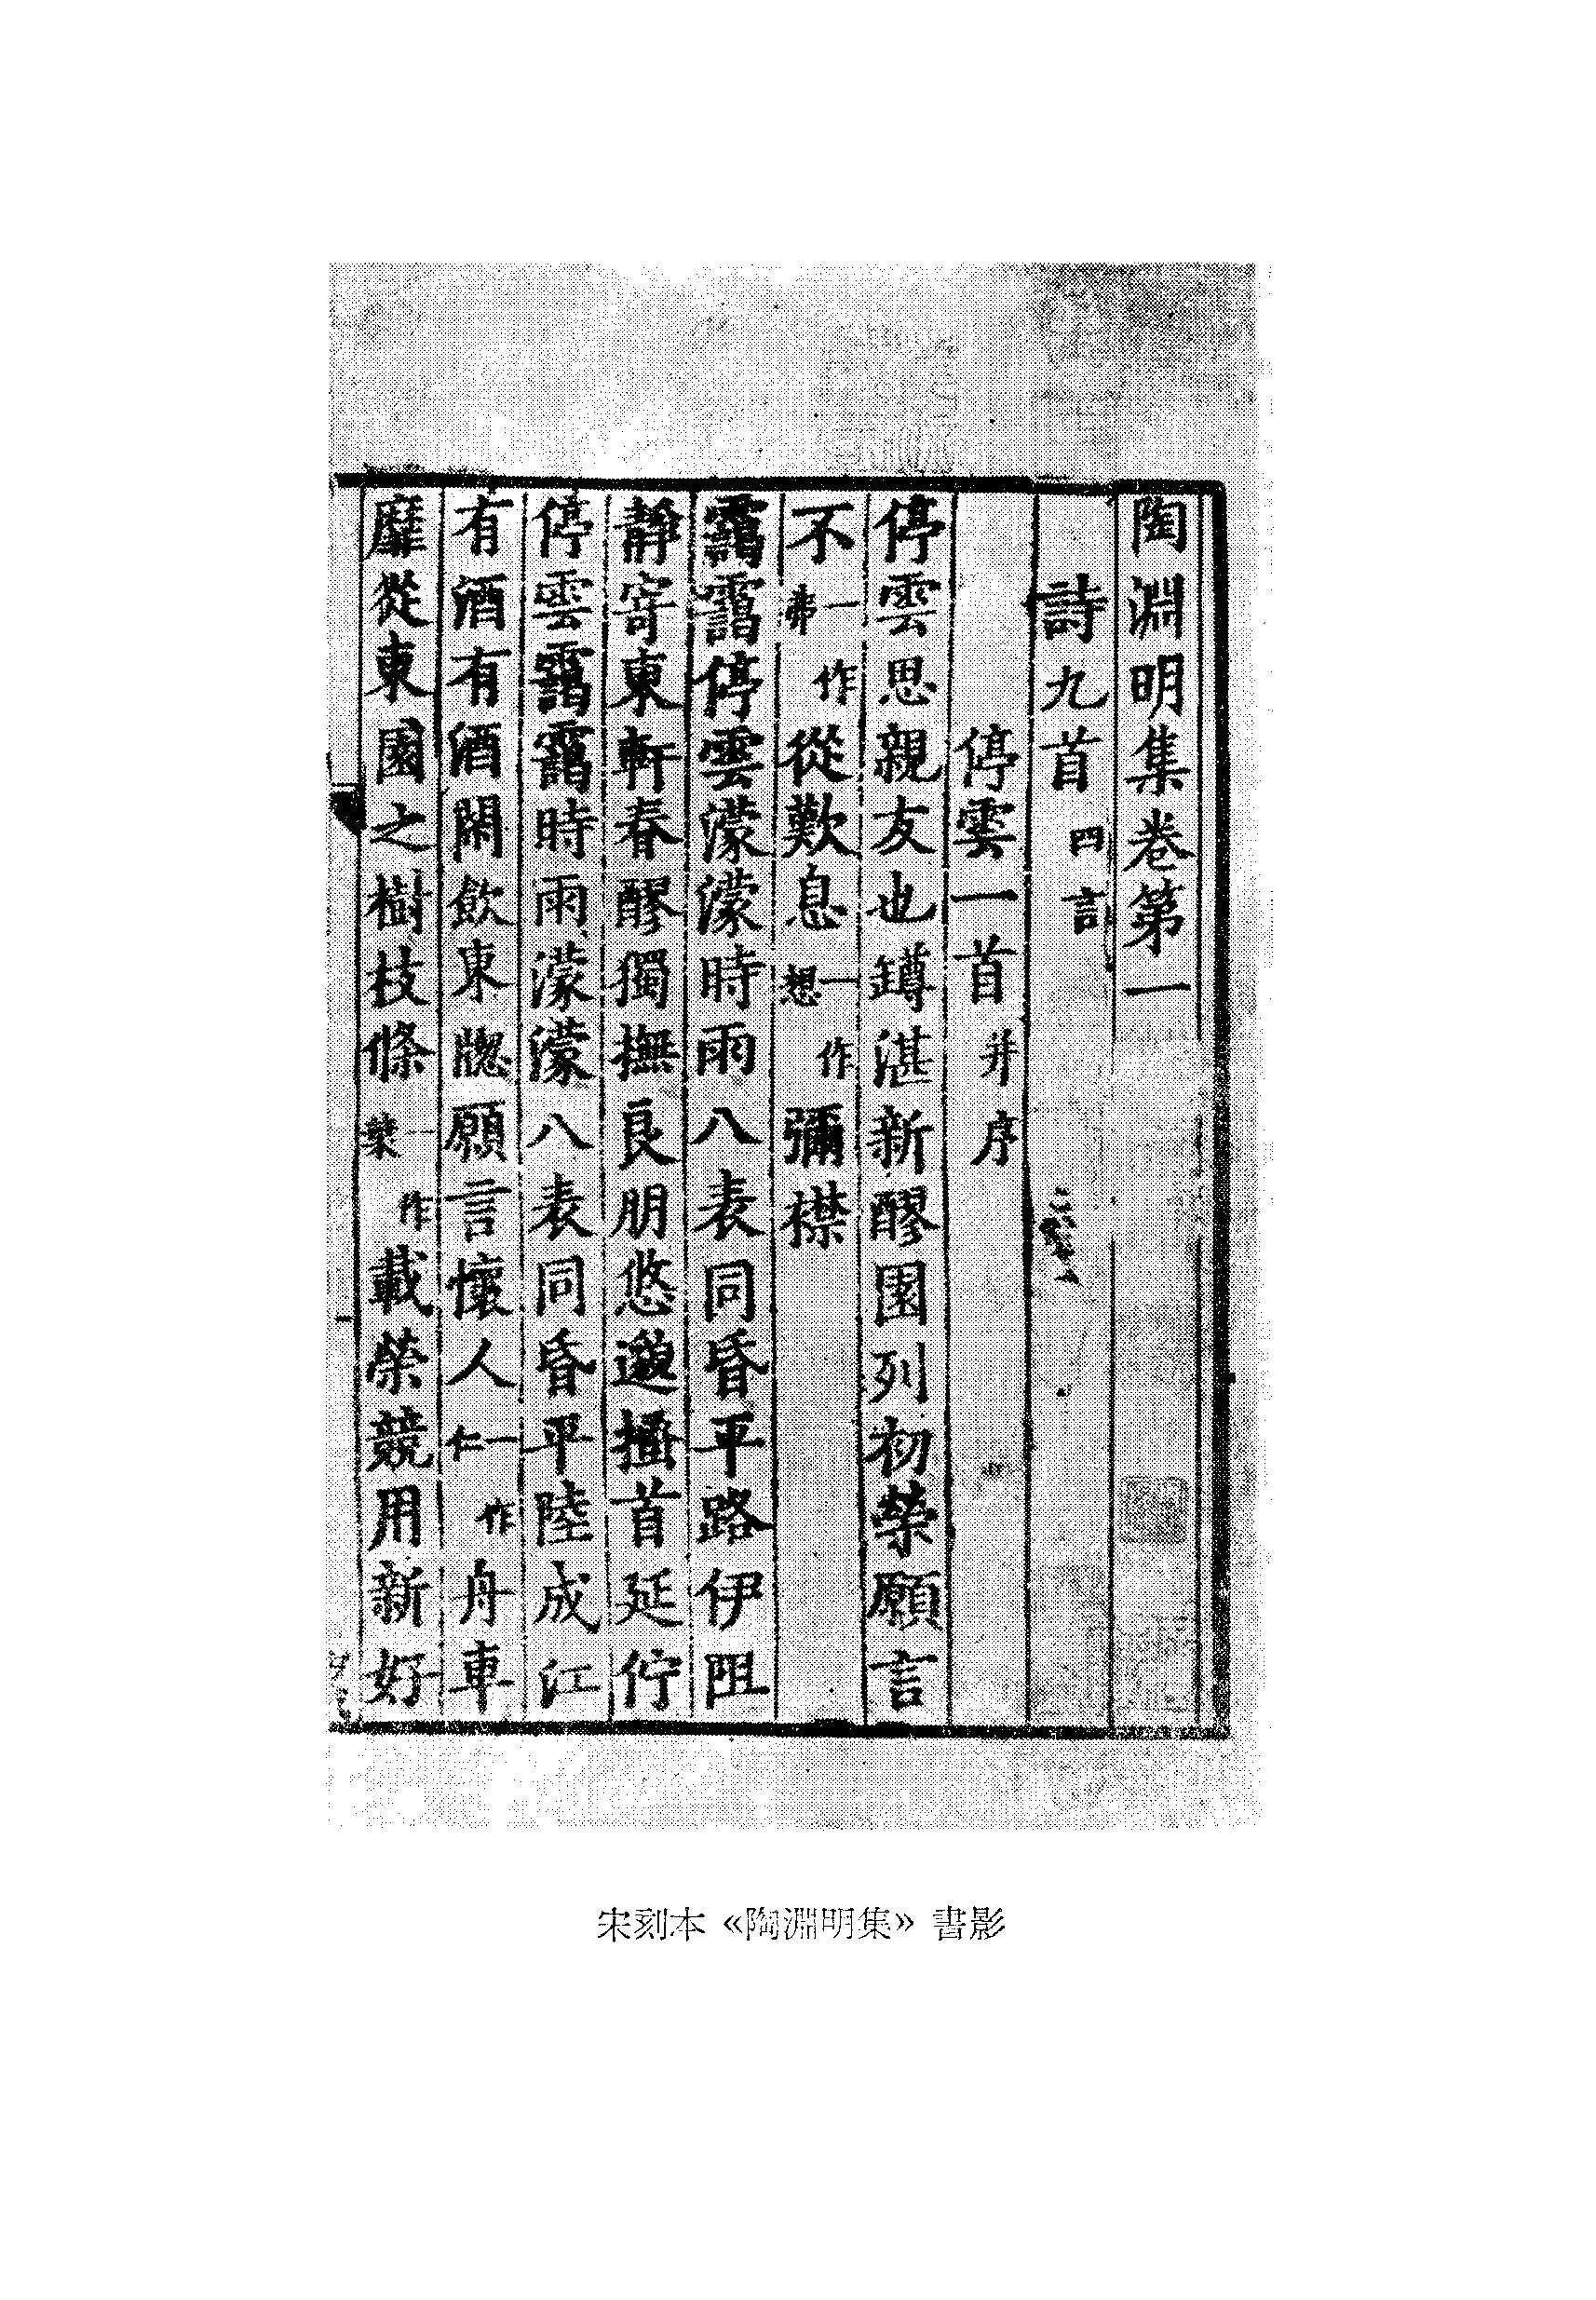 陶淵明集卷第一
詩九首四言
停雲一首并序
停雲思親友也罇湛新醪園列初榮願言
不一作弗從歎息一作想彌襟
靄靄停雲濛濛時雨八表同昏平路伊阻
靜寄東軒春醪獨撫良朋悠邈搔首延佇
停雲靄靄時雨濛濛八表同昏平陸成江
有酒有酒閑飲東牕願言懷人一作仁舟車
靡從東園之樹枝條一作葉載榮競用新好
宋刻本《陶淵明集》書影